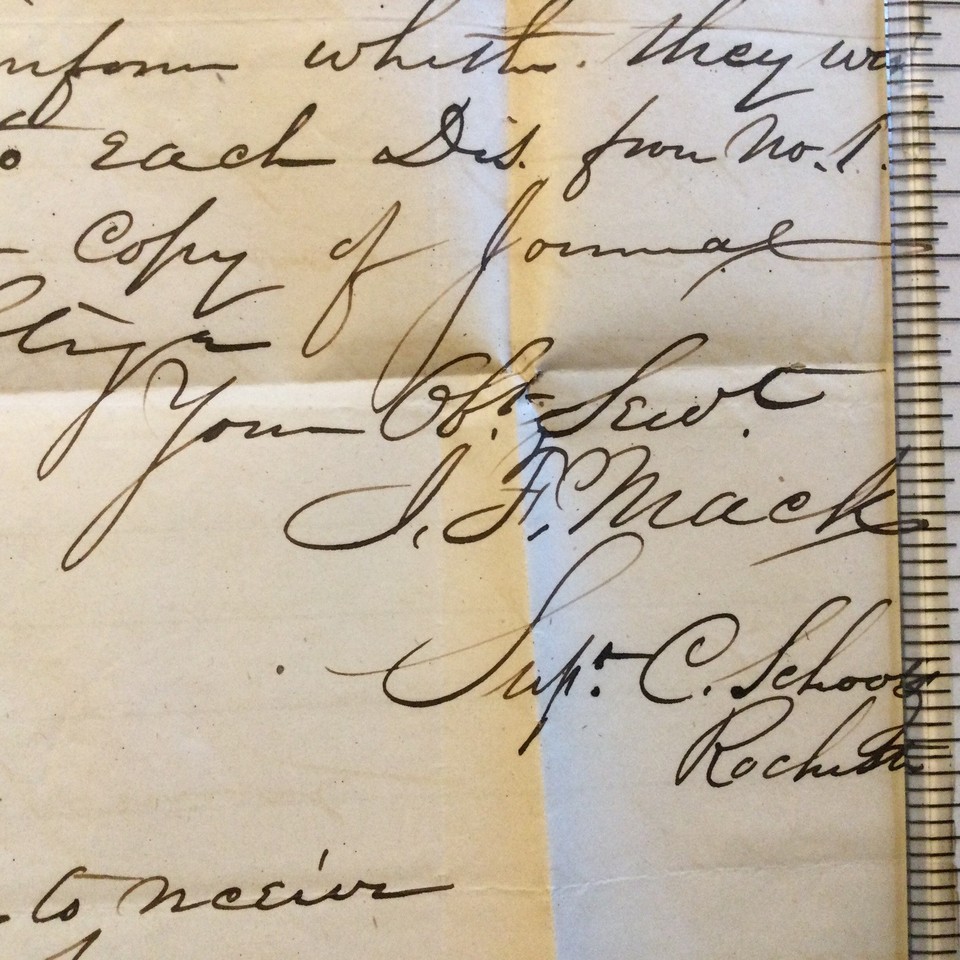 inform whether they wi
to each Dis. from No. 1.
Copy of Journal
Your Obt. Servt.
I. F. Mack
Supt. C. Schools
Rochester
to receive